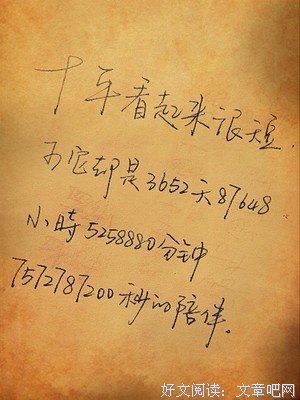 十年看起来很短.
可它却是3652天87648
小時5258880分钟
7572787200秒的陪伴.
好文阅读：文章吧网